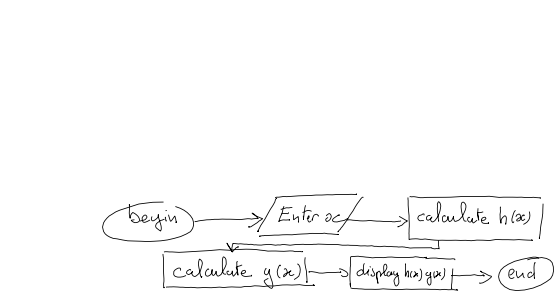 begin
Enter x
calculate h(x)
calculate g(x)
display h(x) g(x)
end